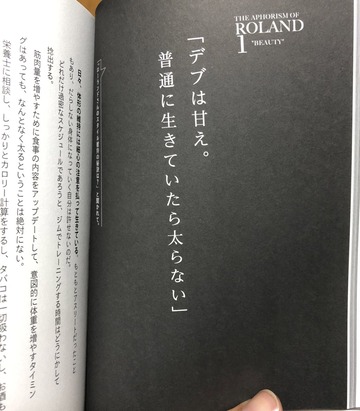 THE APHORISM OF
ROLAND
1
"BEAUTY"
「デブは甘え。
普通に生きていたら太らない」
と聞かれて、
日々、体形の維持には細心の注意を払って生きている。もともとアスリートだったこと
もあり、だらしない身体になっていく自分は許せないのだ。
どれだけ過密なスケジュールであろうと、ジムでトレーニングする時間はどうにかして
捻出する。
筋肉量を増やすために食事の内容をアップデートして、意図的に体重を増やすタイミン
グはあっても、なんとなく太るということは絶対にない。
栄養士に相談し、しっかりとカロリー計算をするし、タバコは一切吸わないし、お酒も